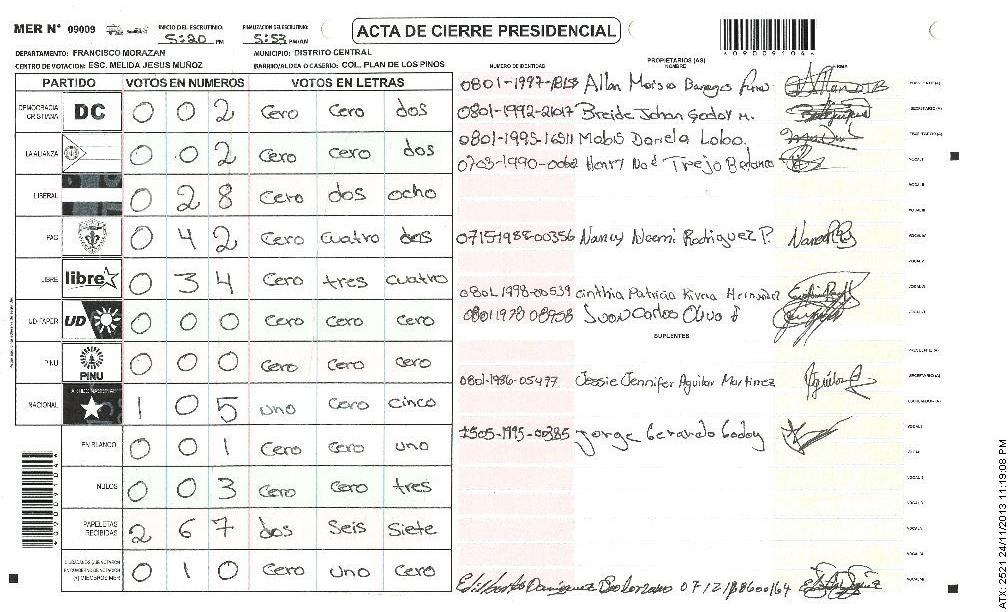 MER N° 09009 INICIO DEL ESCRUTINIO: 5:20 PM FINALIZACION DEL ESCRUTINIO: 5:53 PM/AM ACTA DE CIERRE PRESIDENCIAL
DEPARTAMENTO: FRANCISCO MORAZAN MUNICIPIO: DISTRITO CENTRAL
CENTRO DE VOTACION: ESC. MELIDA JESUS MUÑOZ BARRIO/ALDEA O CASERIO: COL. PLAN DE LOS PINOS
PARTIDO VOTOS EN NUMEROS VOTOS EN LETRAS
DEMOCRACIA CRISTIANA DC 0 0 2 Cero Cero dos
LA ALIANZA 0 0 2 Cero Cero dos
LIBERAL 0 2 8 Cero dos ocho
PAC 0 4 2 Cero cuatro dos
LIBRE libre 0 3 4 Cero tres cuatro
UD-FAPER UD 0 0 0 Cero Cero Cero
PINU PINU 0 0 0 Cero Cero Cero
NACIONAL 1 0 5 uno Cero cinco
EN BLANCO 0 0 1 Cero Cero uno
NULOS 0 0 3 Cero Cero tres
PAPELETAS RECIBIDAS 2 6 7 dos Seis Siete
0 1 0 Cero uno Cero
NUMERO DE IDENTIDAD PROPIETARIOS (AS) NOMBRE FIRMA
Allan
0801-1992-21017 Breide Johan Godoy M.
Lobo
Henry Trejo
0715-1988-00356 Nancy Noemi Rodriguez P.
0801 1998-00539 Cinthia Patricia Rivera
Carlos
SUPLENTES
0801-1986-05477 Jessie Jennifer Aguilar Martinez
1505-1995-00385 Jorge Gerardo Godoy
ATX-2521 24/11/2013 11:19:08 PM